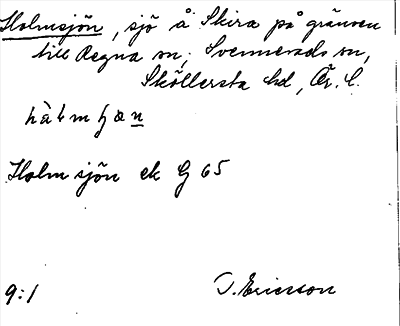 Holmsjön, sjö å Skira på gränsen
till Regna sn, Svennevads sn,
Sköllersta hd, Ör. l.
Holmsjön ek G 65
9:1 T. Ericsson